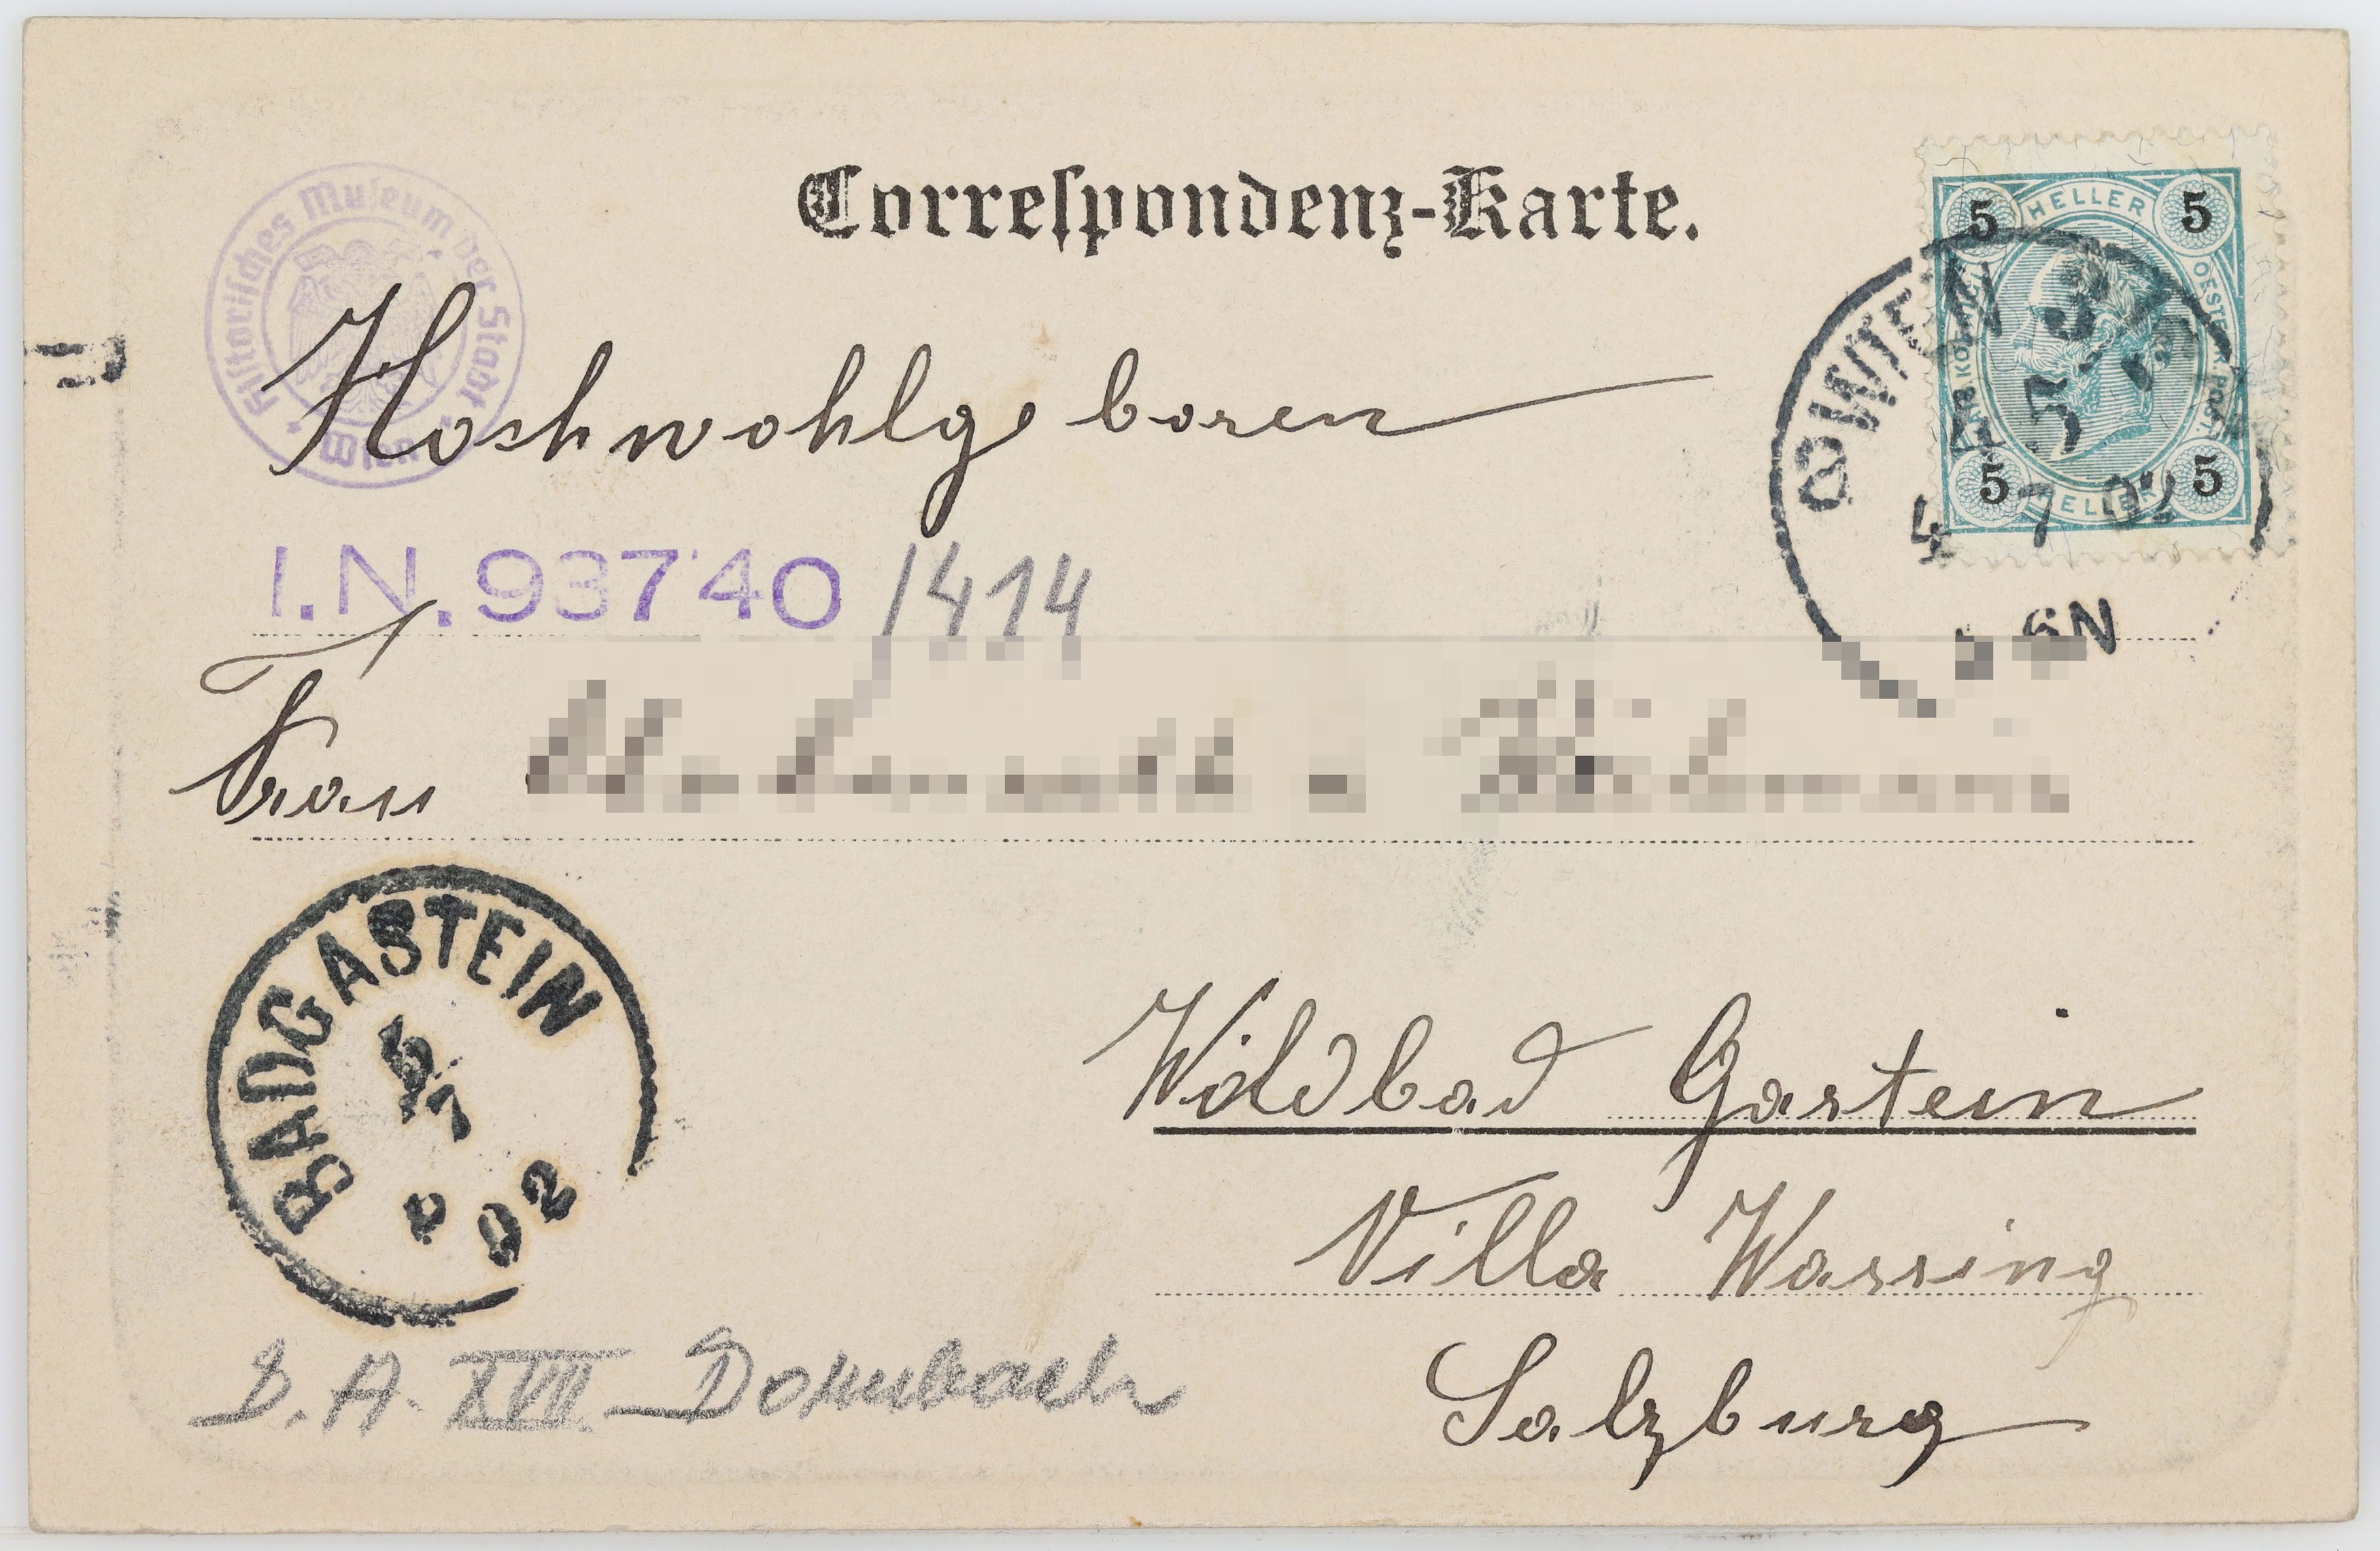 Correspondenz-Karte.
Historisches Museum der Stadt
Wien
5 HELLER 5
OESTERR. POST.
5 HELLER 5
WIEN
4 7 02
6N
Hochwohlgeboren
I.N. 93740/414
Frau
BADGASTEIN
5/7
02
Wildbad Gastein
Villa Wassing
Salzburg
XVII Dornbach